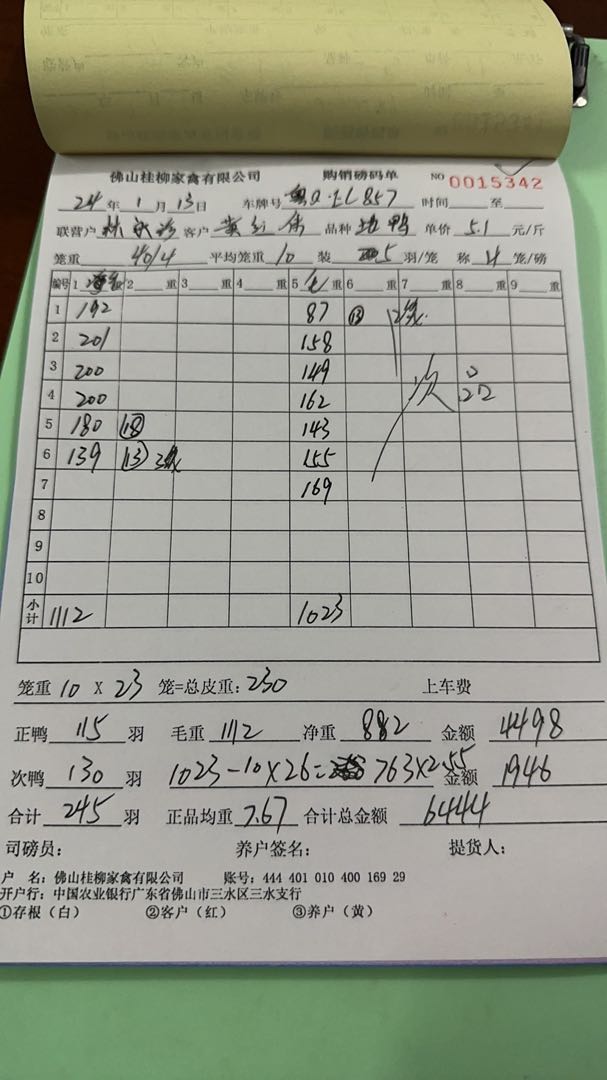 佛山桂柳家禽有限公司 购销磅码单 NO 0015342
24 年 1 月 13 日 车牌号 857 时间 至
联营户 林 客户 黄 品种 鸭 单价 5.1 元/斤
笼重 40/4 平均笼重 10 装 5 羽/笼 称 4 笼/磅
编号 1 重 2 重 3 重 4 重 5 重 6 重 7 重 8 重 9 重
1 192 87 ⑬
2 201 158
3 200 149
4 200 162 次
5 180 ⑱ 143
6 139 ⑬ 155
7 169
8
9
10
小计 1112 1023
笼重 10 X 23 笼=总皮重: 230 上车费
正鸭 115 羽 毛重 1112 净重 882 金额 4498
次鸭 130 羽 1023-10×26= 763×2.55 金额 1946
合计 245 羽 正品均重 7.67 合计总金额 6444
司磅员: 养户签名: 提货人:
户 名: 佛山桂柳家禽有限公司 账号: 444 401 010 400 169 29
开户行: 中国农业银行广东省佛山市三水区三水支行
①存根（白） ②客户（红） ③养户（黄）